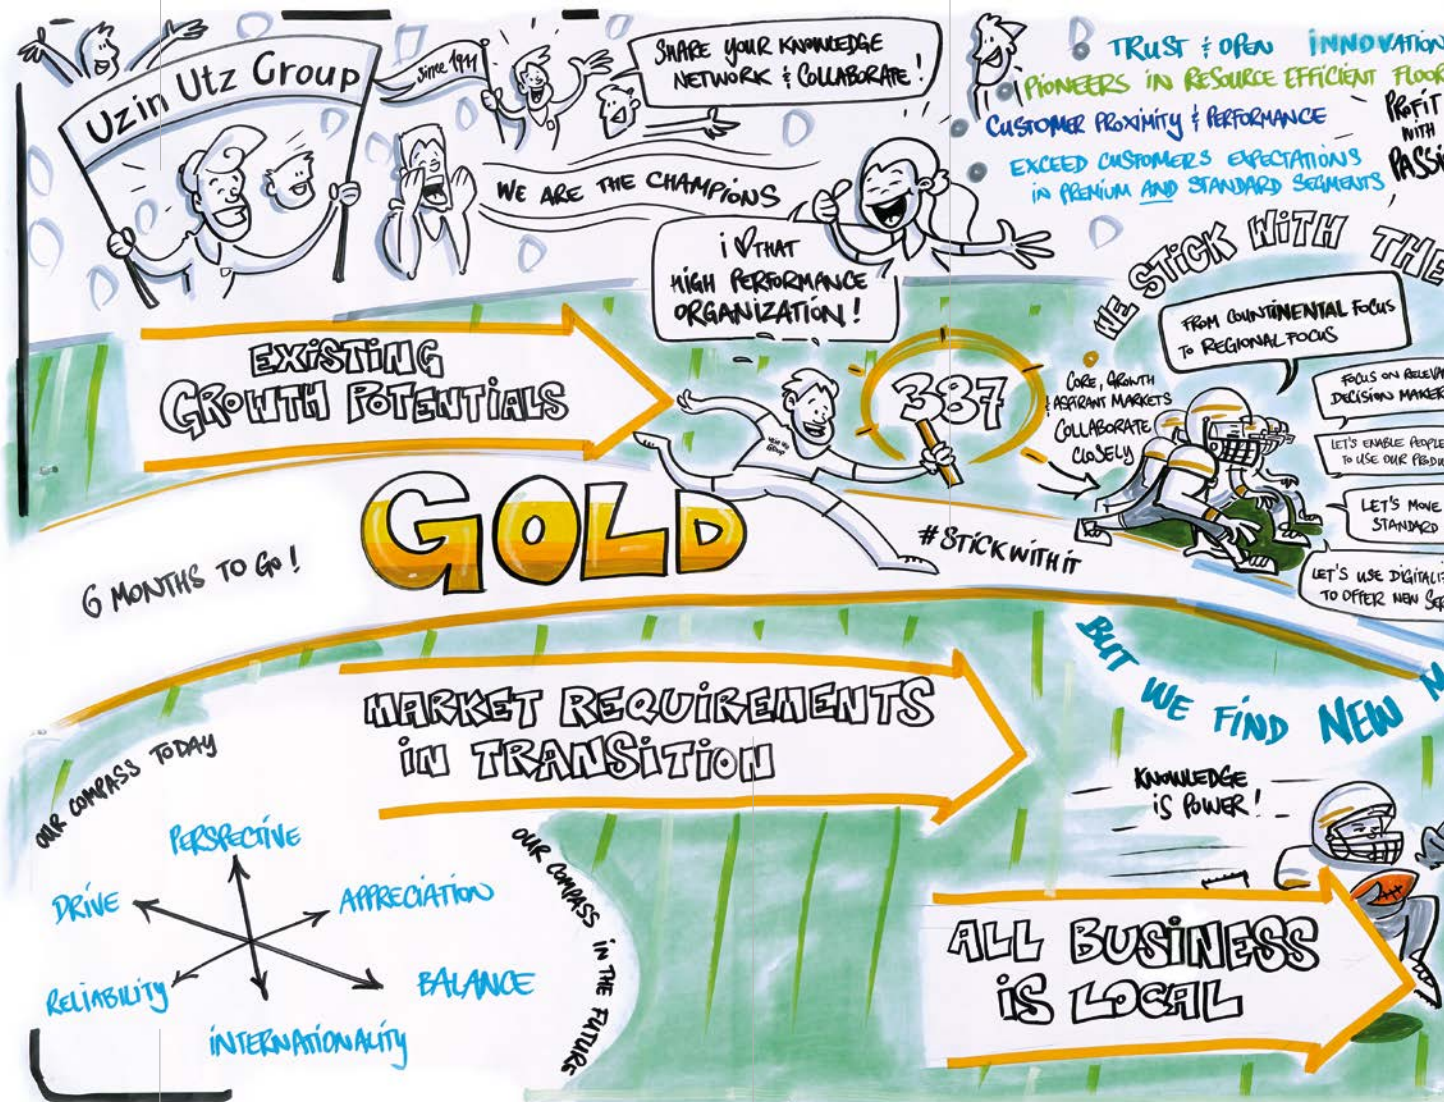 Uzin Utz Group
Since 1911
SHARE YOUR KNOWLEDGE
NETWORK & COLLABORATE!
WE ARE THE CHAMPIONS
i ♡ THAT
HIGH PERFORMANCE
ORGANIZATION!
TRUST & OPEN INNOVATION
PIONEERS IN RESOURCE EFFICIENT FLOOR
CUSTOMER PROXIMITY & PERFORMANCE
EXCEED CUSTOMERS EXPECTATIONS
IN PREMIUM AND STANDARD SEGMENTS
PROFIT
WITH
PASSI
WE STICK WITH THE
FROM COUNTINENTAL FOCUS
TO REGIONAL FOCUS
FOCUS ON RELEVA
DECISION MAKER
LET'S ENABLE PEOPLE
TO USE OUR PRODU
LET'S MOVE
STANDARD
LET'S USE DIGITALI
TO OFFER NEW SER
EXISTING
GROWTH POTENTIALS
387
CORE, GROWTH
& ASPIRANT MARKETS
COLLABORATE
CLOSELY
UZIN UTZ
GROUP
GOLD
#STICKWITHIT
6 MONTHS TO GO!
MARKET REQUIREMENTS
IN TRANSITION
BUT WE FIND NEW M
KNOWLEDGE
IS POWER!
OUR COMPASS TODAY
PERSPECTIVE
DRIVE
APPRECIATION
RELIABILITY
BALANCE
INTERNATIONALITY
OUR COMPASS IN THE FUTURE
ALL BUSINESS
IS LOCAL